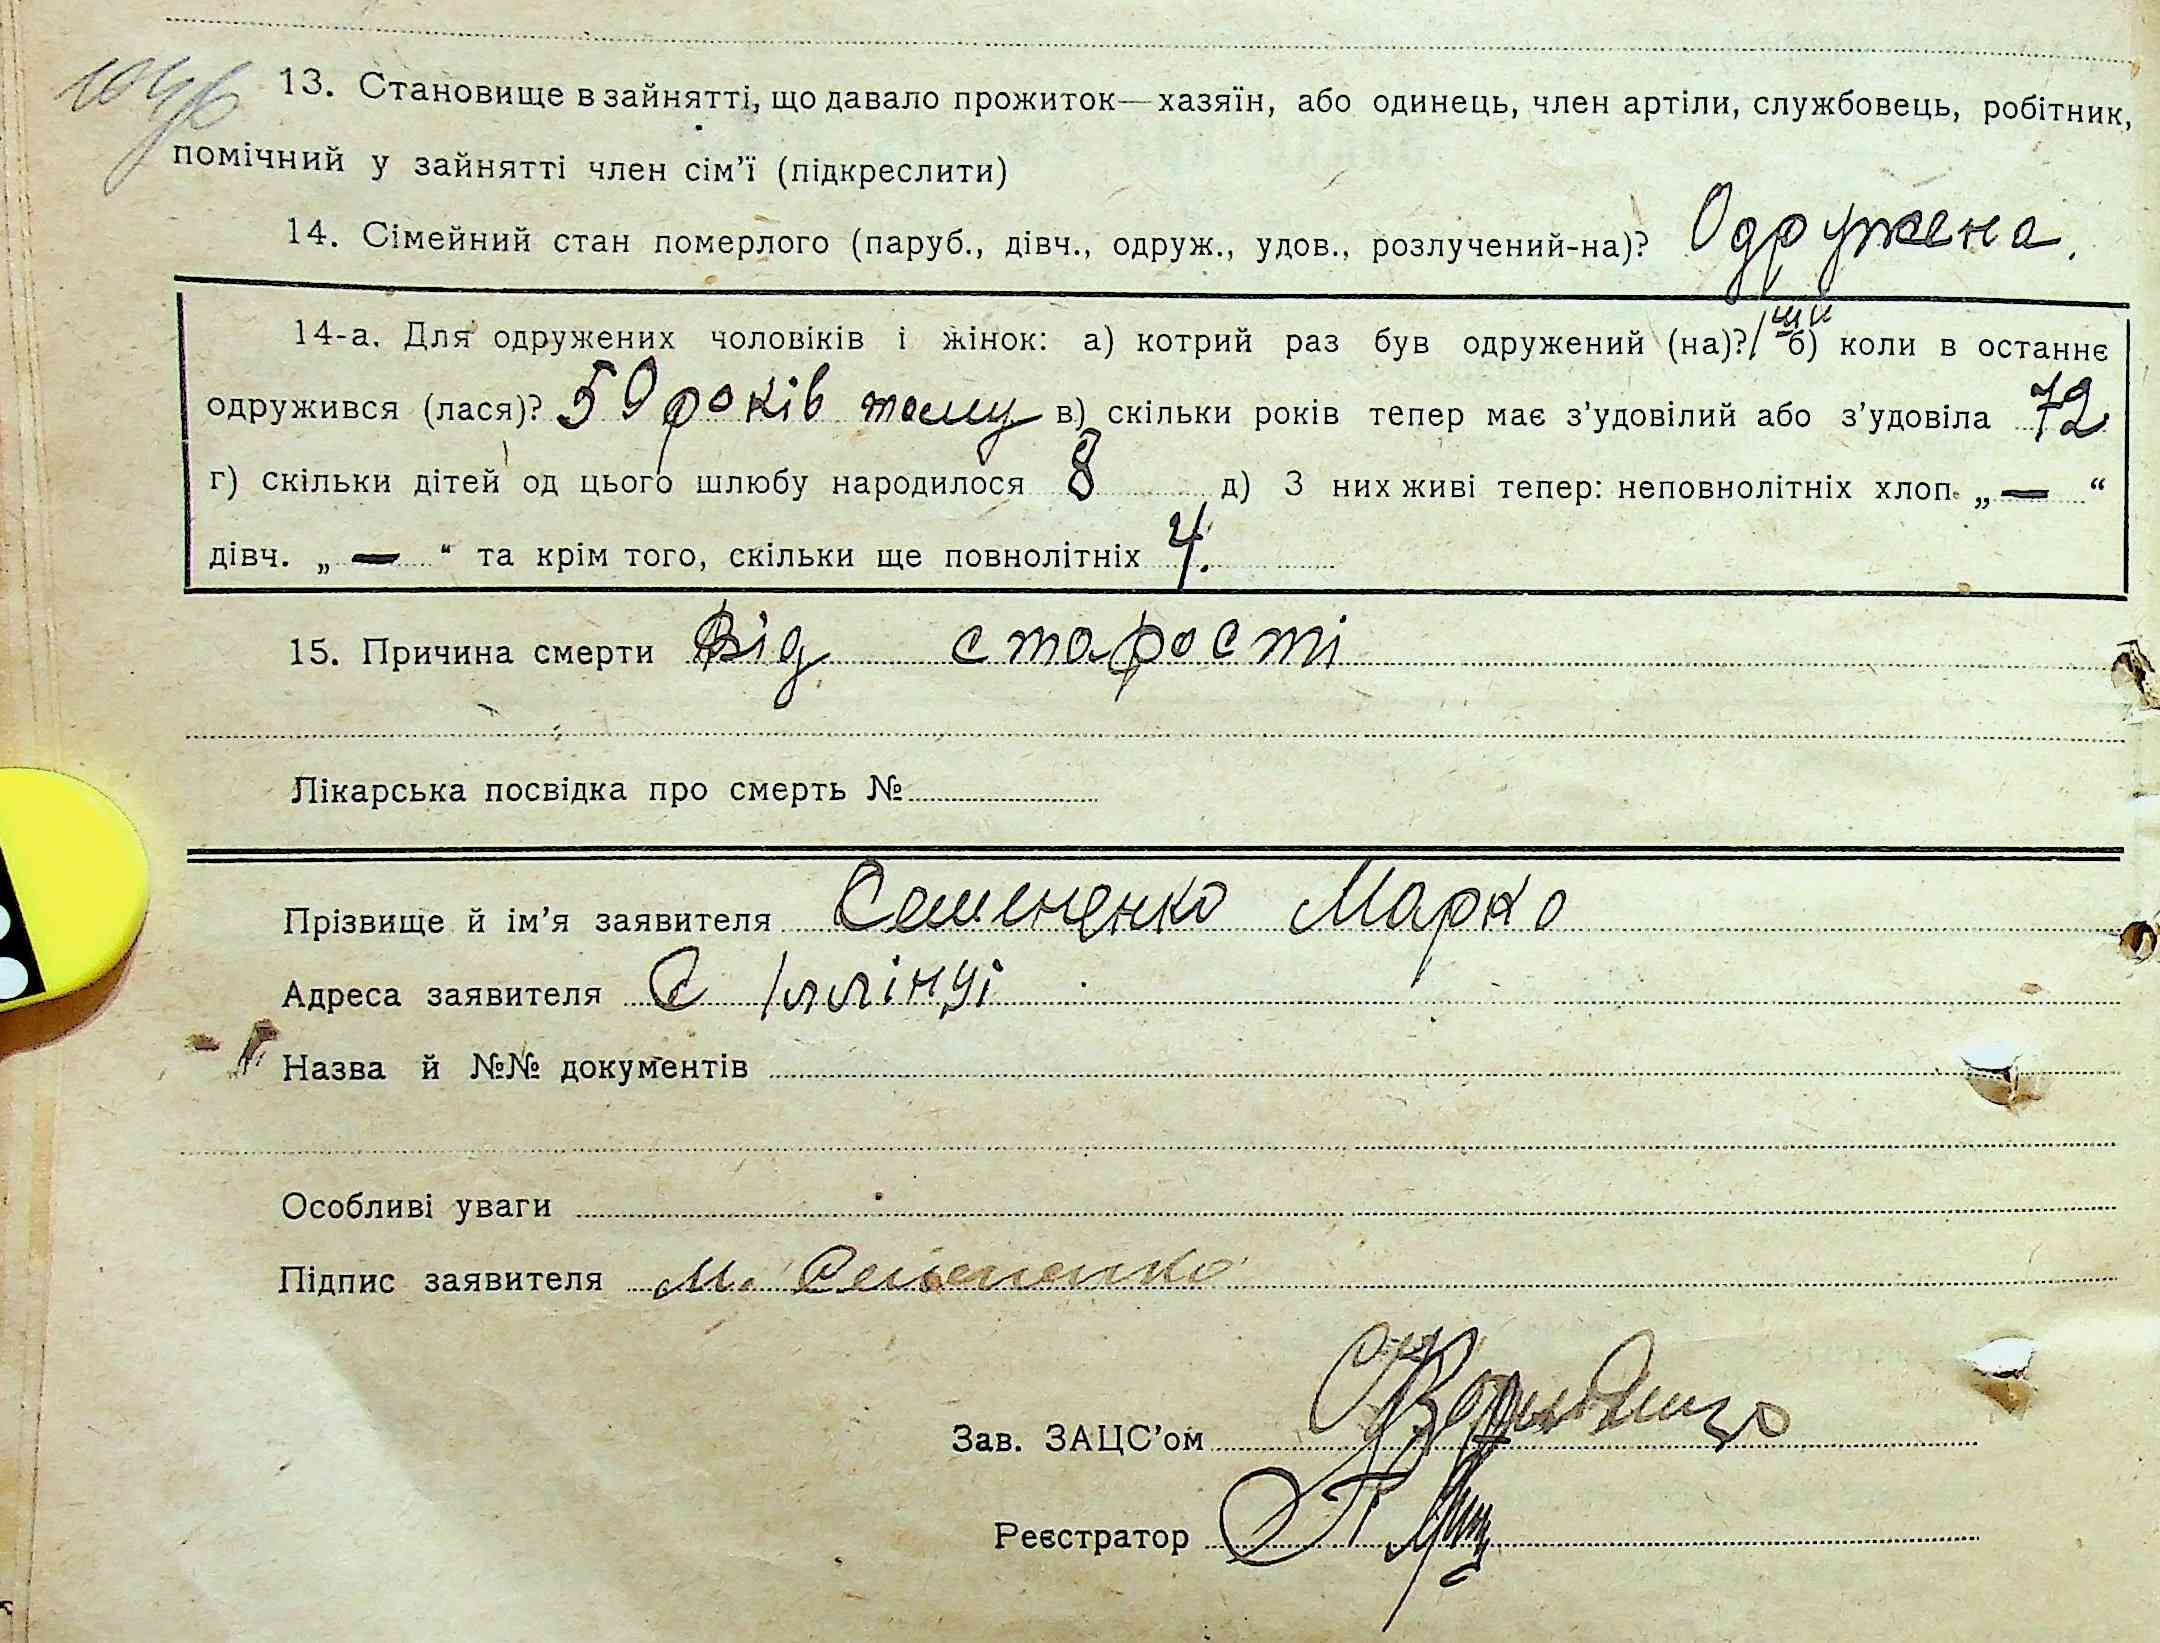 13. Становище в зайнятті, що давало прожиток—хазяїн, або одинець, член артіли, службовець, робітник,
помічний у зайнятті член сім'ї (підкреслити)
14. Сімейний стан померлого (паруб., дівч., одруж., удов., розлучений-на)? Одружена.
14-а. Для одружених чоловіків і жінок: а) котрий раз був одружений (на)? 1ший б) коли в останнє
одружився (лася)? 50 років тому в) скільки років тепер має з'удовілий або з'удовіла 72
г) скільки дітей од цього шлюбу народилося 8 д) З них живі тепер: неповнолітніх хлоп. „—“
дівч. „—“ та крім того, скільки ще повнолітніх 4.
15. Причина смерти Від старості
Лікарська посвідка про смерть №
Прізвище й ім'я заявителя Семененко Марко
Адреса заявителя С Іллінці
Назва й №№ документів
Особливі уваги
Підпис заявителя М. Семененко
Зав. ЗАЦС'ом
Реєстратор